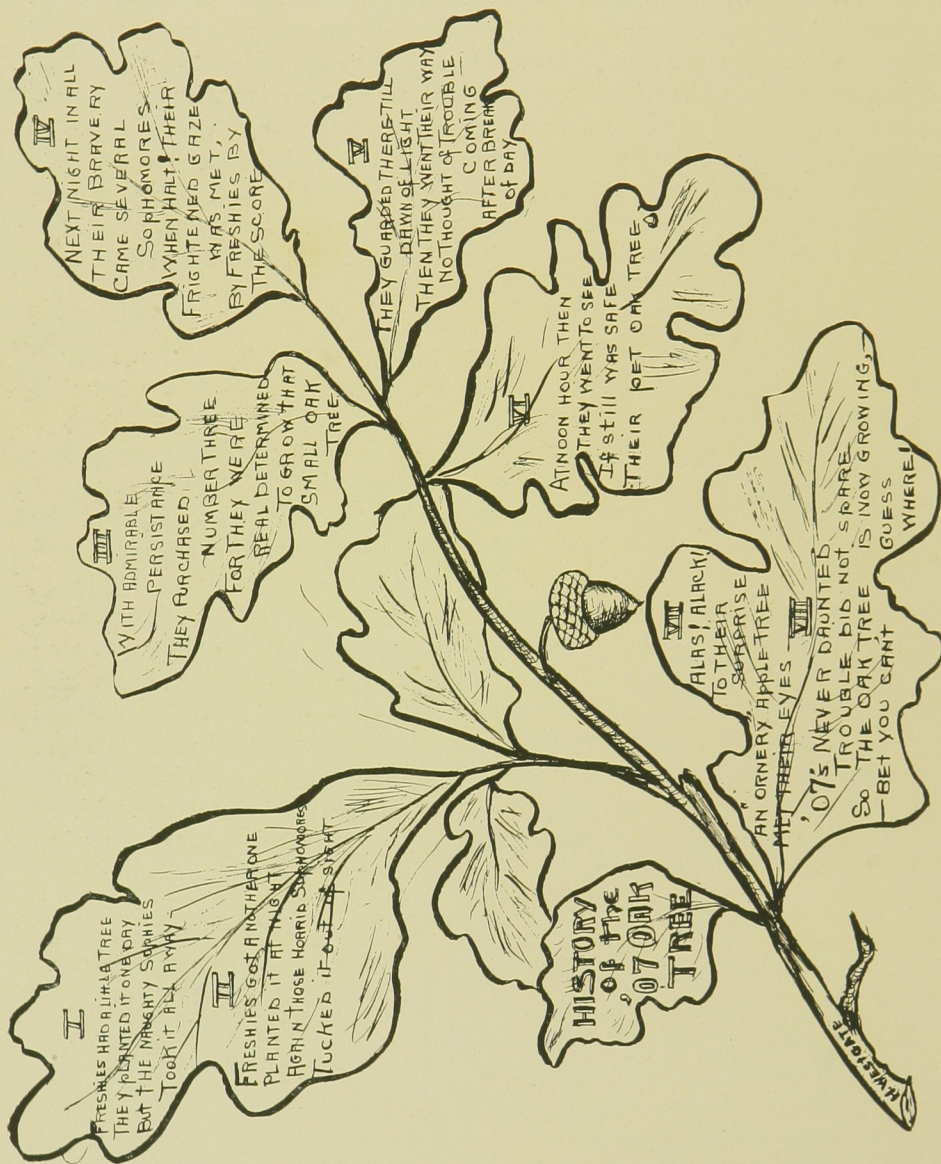 HISTORY
of the
'07 OAK
TREE
I
FRESHIES HAD A LITTLE TREE
THEY PLANTED IT ONE DAY
BUT THE NAUGHTY SOPHIES
TOOK IT ALL AWAY.
II
FRESHIES GOT ANOTHER ONE
PLANTED IT AT NIGHT
AGAIN THOSE HORRID SOPHOMORES
TUCKED IT OUT OF SIGHT
III
WITH ADMIRABLE
PERSISTANCE
THEY PURCHASED
NUMBER THREE
FOR THEY WERE
REAL DETERMINED
TO GROW THAT
SMALL OAK
TREE.
IV
NEXT NIGHT IN ALL
THEIR BRAVERY
CAME SEVERAL
SOPHOMORES
WHEN HALT! THEIR
FRIGHTENED GAZE
WAS MET,
BY FRESHIES BY
THE SCORE
V
THEY GUARDED THERE TILL
DAWN OF LIGHT
THEN THEY WENT THEIR WAY
NO THOUGHT of TROUBLE
COMING
AFTER BREAK
of DAY
VI
AT NOON HOUR THEN
THEY WENT TO SEE
If still WAS SAFE
THEIR PET OAK TREE,
VII
ALAS! ALACK!
TO THEIR
SURPRISE
AN "ORNERY" APPLE TREE
MET THEIR EYES —
VIII
'07's NEVER DAUNTED
TROUBLE DID NOT SPARE
SO THE OAK TREE IS NOW GROWING,—
—BET YOU CAN'T GUESS
WHERE!
H. WESTGATE